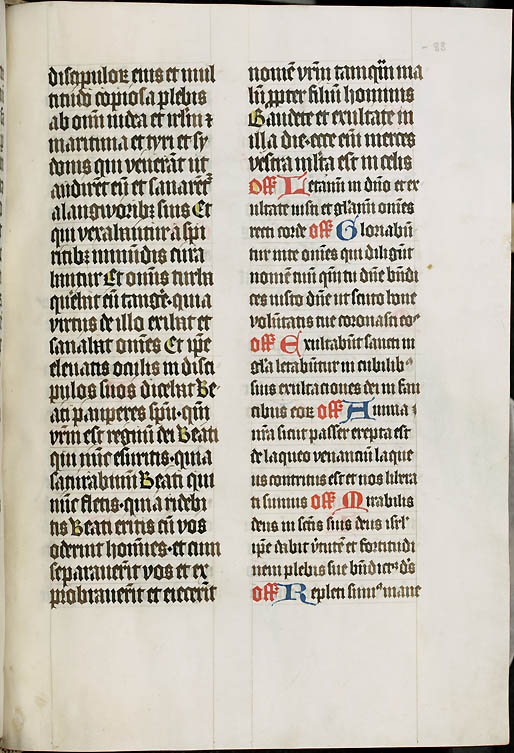 discipuloꝝ eius et mul
titudo copiosa plebis
ab om̄i iudea et irl̄m ⁊
maritima et tyri et sy
donis qui venerāt ut
audirēt eū et sanarēt᷑
a languoribꝫ suis Et
qui vexabantur a spi
ritibꝫ inmūdis cura
bantur Et omnis turba
querebat eū tangere·quia
virtus de illo exibat et
sanabat om̄es Et ip̄e
eleuatis oculis in disci
pulos suos dicebat Be
ati pauperes sp̄u·qm̄
vr̄m est regnū dei Beati
qui nūc esuritis·quia
saturabimini Beati qui
nūc fletis·quia ridebi
tis Beati eritis cū vos
oderint hoīes·et cum
separauerīt vos et ex
probrauerīt et eiecerīt
nomē vr̄m tamqm̄ ma
lū ꝓpter filiū hominis
Gaudete et exultate in
illa die·ecce eni merces
vestra mlta est in celis
Off Letamī in dn̄o et ex
ultate iusti et gl̄amī om̄es
recti corde Off Gloriabūt
tur in te om̄es qui diligūt
nomē tuū qm̄ tu dn̄e bn̄di
ces iusto dn̄e ut scuto bone
volūtatis tue coronasti eos
Off Exultabūt sancti in
gl̄a letabūtur in cubilibꝫ
suis exultationes dei in fau
cibus eoꝝ Off Anima
nr̄a sicut passer erepta est
de laqueo venantiū laque
us contritus est et nos libera
ti sumus Off Mirabilis
deus in sc̄is suis deus isrl̄
ip̄e dabit v̄tutē et fortitudi
nem plebis sue bn̄dict᷒ ds̄
Off Repleti sum᷒ mane